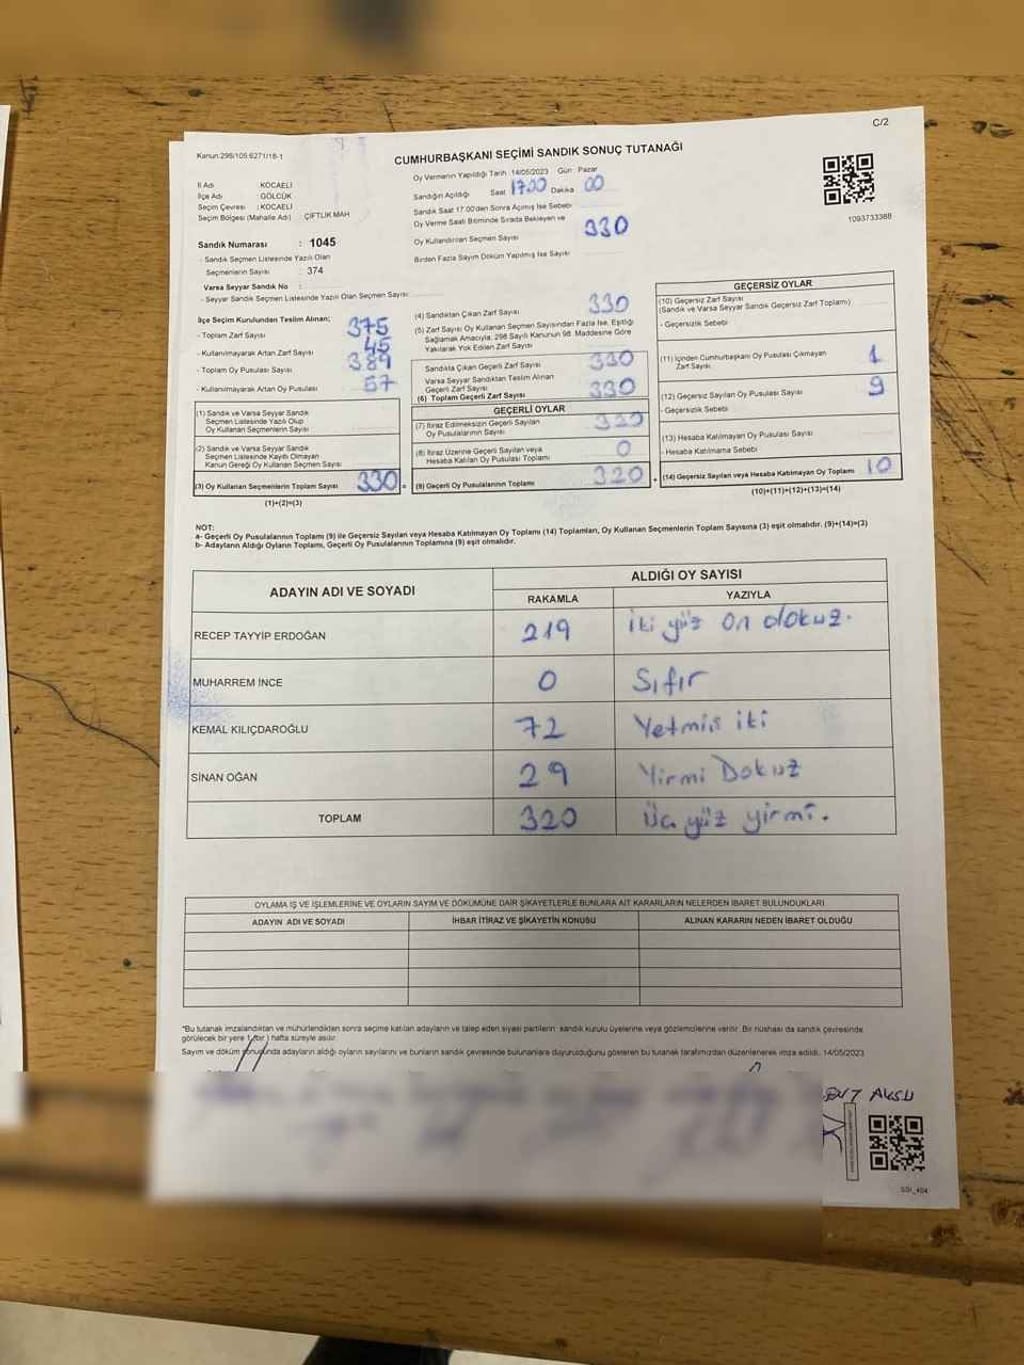 C/2
Kanun:298/105:6271/18-1
CUMHURBAŞKANI SEÇİMİ SANDIK SONUÇ TUTANAĞI
İl Adı : KOCAELİ
İlçe Adı : GÖLCÜK
Seçim Çevresi : KOCAELİ
Seçim Bölgesi (Mahalle Adı) : ÇİFTLİK MAH
Sandık Numarası : 1045
- Sandık Seçmen Listesinde Yazılı Olan
Seçmenlerin Sayısı : 374
Varsa Seyyar Sandık No :
- Seyyar Sandık Seçmen Listesinde Yazılı Olan Seçmen Sayısı:
Oy Vermenin Yapıldığı Tarih 14/05/2023 Gün: Pazar
Sandığın Açıldığı Saat 17:00 Dakika 00
Sandık Saat 17.00'den Sonra Açılmış İse Sebebi
Oy Verme Saati Bitiminde Sırada Bekleyen ve
Oy Kullandırılan Seçmen Sayısı 330
Birden Fazla Sayım Döküm Yapılmış İse Sayısı
1093733388
İlçe Seçim Kurulundan Teslim Alınan;
- Toplam Zarf Sayısı 375
- Kullanılmayarak Artan Zarf Sayısı 45
- Toplam Oy Pusulası Sayısı 389
- Kullanılmayarak Artan Oy Pusulası 57
(1) Sandık ve Varsa Seyyar Sandık
Seçmen Listesinde Yazılı Olup
Oy Kullanan Seçmenlerin Sayısı
(2) Sandık ve Varsa Seyyar Sandık
Seçmen Listesinde Kayıtlı Olmayan
Kanun Gereği Oy Kullanan Seçmen Sayısı
(3) Oy Kullanan Seçmenlerin Toplam Sayısı 330 =
(1)+(2)=(3)
(4) Sandıktan Çıkan Zarf Sayısı 330
(5) Zarf Sayısı Oy Kullanan Seçmen Sayısından Fazla İse, Eşitliği
Sağlamak Amacıyla, 298 Sayılı Kanunun 98. Maddesine Göre
Yakılarak Yok Edilen Zarf Sayısı
Sandıkta Çıkan Geçerli Zarf Sayısı 330
Varsa Seyyar Sandıktan Teslim Alınan
Geçerli Zarf Sayısı
(6) Toplam Geçerli Zarf Sayısı 330
GEÇERLİ OYLAR
(7) İtiraz Edilmeksizin Geçerli Sayılan
Oy Pusulalarının Sayısı 320
(8) İtiraz Üzerine Geçerli Sayılan veya
Hesaba Katılan Oy Pusulası Toplamı 0
(9) Geçerli Oy Pusulalarının Toplamı 320 +
GEÇERSİZ OYLAR
(10) Geçersiz Zarf Sayısı
(Sandık ve Varsa Seyyar Sandık Geçersiz Zarf Toplamı)
- Geçersizlik Sebebi
(11) İçinden Cumhurbaşkanı Oy Pusulası Çıkmayan
Zarf Sayısı 1
(12) Geçersiz Sayılan Oy Pusulası Sayısı 9
- Geçersizlik Sebebi
(13) Hesaba Katılmayan Oy Pusulası Sayısı
- Hesaba Katılmama Sebebi
(14) Geçersiz Sayılan veya Hesaba Katılmayan Oy Toplamı 10
(10)+(11)+(12)+(13)=(14)
NOT:
a- Geçerli Oy Pusulalarının Toplamı (9) ile Geçersiz Sayılan veya Hesaba Katılmayan Oy Toplamı (14) Toplamları, Oy Kullanan Seçmenlerin Toplam Sayısına (3) eşit olmalıdır. (9)+(14)=(3)
b- Adayların Aldığı Oyların Toplamı, Geçerli Oy Pusulalarının Toplamına (9) eşit olmalıdır.
ADAYIN ADI VE SOYADI
ALDIĞI OY SAYISI
RAKAMLA YAZIYLA
RECEP TAYYİP ERDOĞAN 219 İki yüz on dokuz.
MUHARREM İNCE 0 Sıfır
KEMAL KILIÇDAROĞLU 72 Yetmiş iki
SİNAN OĞAN 29 Yirmi Dokuz
TOPLAM 320 Üç yüz yirmi.
OYLAMA İŞ VE İŞLEMLERİNE VE OYLARIN SAYIM VE DÖKÜMÜNE DAİR ŞİKAYETLERLE BUNLARA AİT KARARLARIN NELERDEN İBARET BULUNDUKLARI
ADAYIN ADI VE SOYADI İHBAR İTİRAZ VE ŞİKAYETİN KONUSU ALINAN KARARIN NEDEN İBARET OLDUĞU
*Bu tutanak imzalandıktan ve mühürlendikten sonra seçime katılan adayların ve talep eden siyasi partilerin sandık kurulu üyelerine veya gözlemcilerine verilir. Bir nüshası da sandık çevresinde
görülecek bir yere 1 (bir) hafta süreyle asılır.
Sayım ve döküm sonucunda adayların aldığı oyların sayılarını ve bunların sandık çevresinde bulunanlara duyurulduğunu gösteren bu tutanak tarafımızdan düzenlenerek imza edildi. 14/05/2023
AKSU